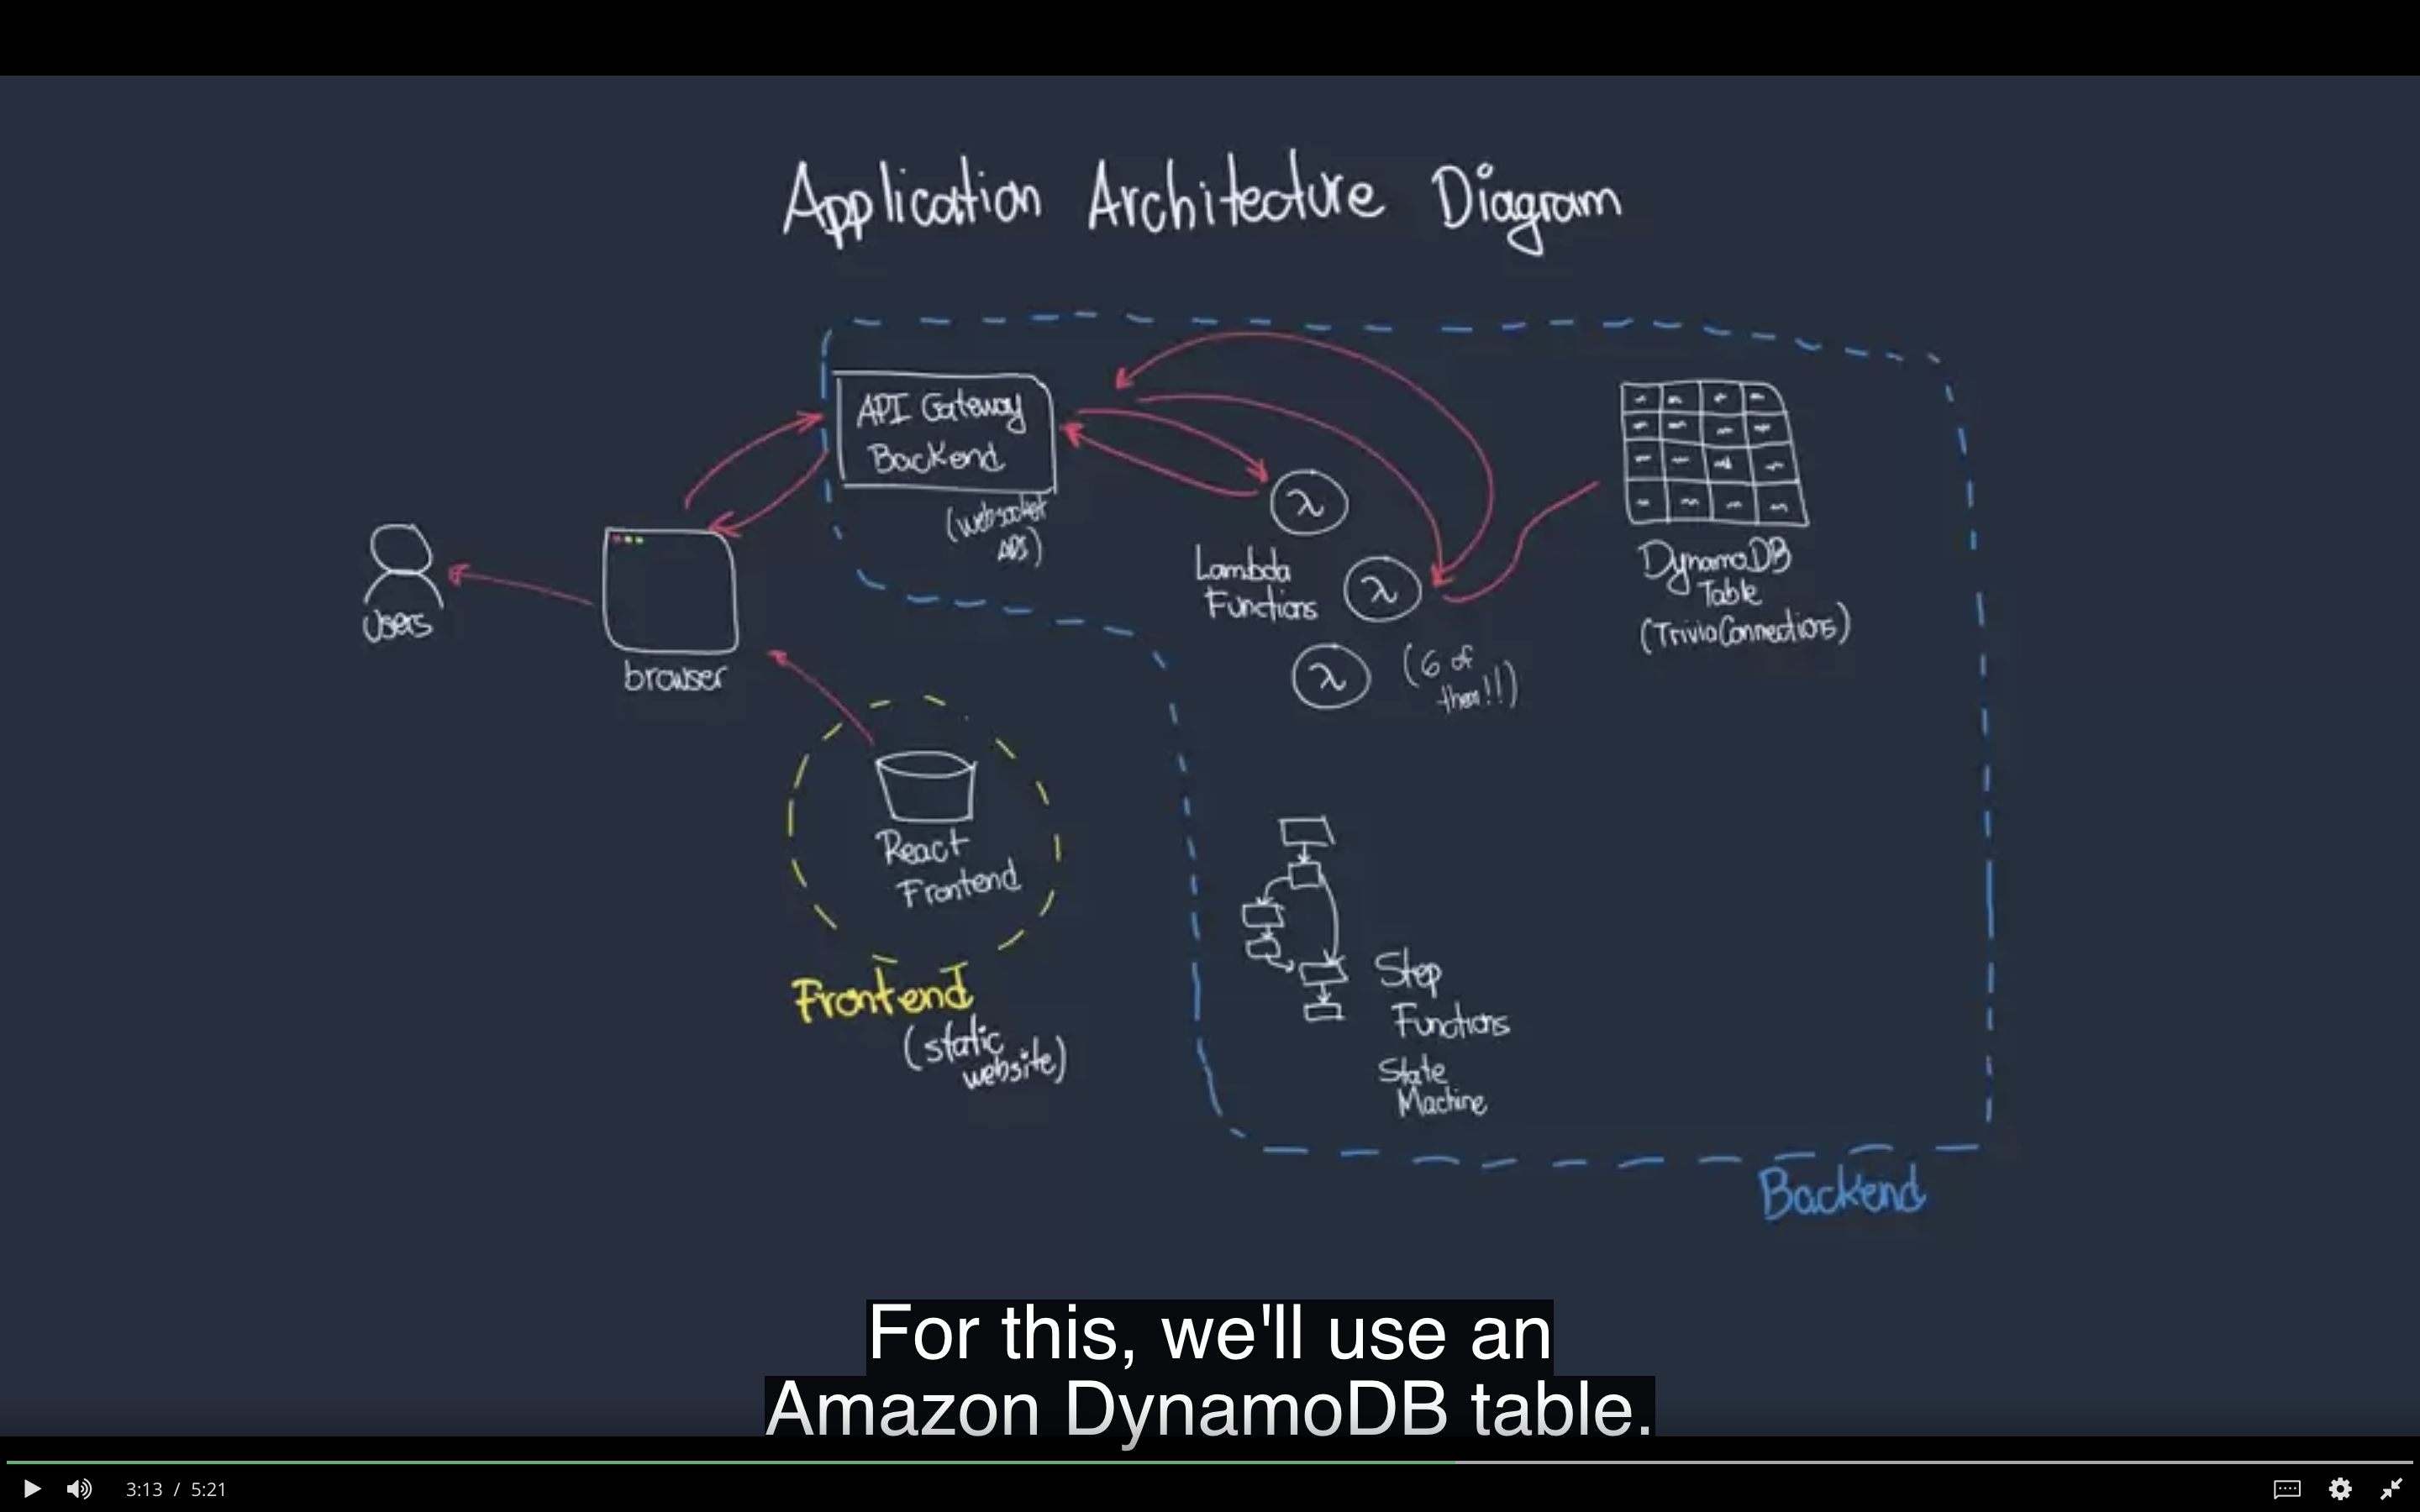 Application Architecture Diagram
API Gateway
Backend
(websocket
API)
Users
browser
Lambda
Functions
λ
λ
λ
(6 of
them!!)
DynamoDB
Table
(TriviaConnections)
React
Frontend
Frontend
(static
website)
Step
Functions
State
Machine
Backend
For this, we'll use an
Amazon DynamoDB table.
3:13 / 5:21